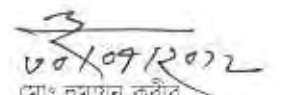 ৩০/০৭/২০১২
মোঃ হুমায়ুন কবীর